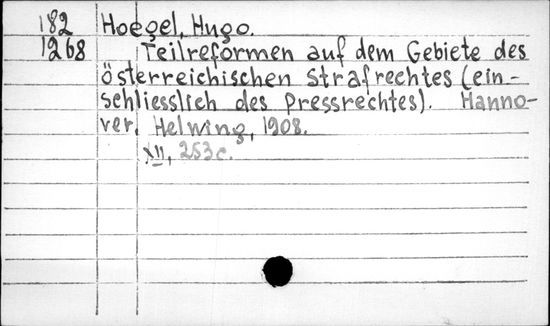 182 Hoegel, Hugo.
1268 Teilreformen auf dem Gebiete des
österreichischen Strafrechtes (ein-
schliesslich des Pressrechtes). Hanno-
ver, Helwing, 1908.
XII, 253 c.